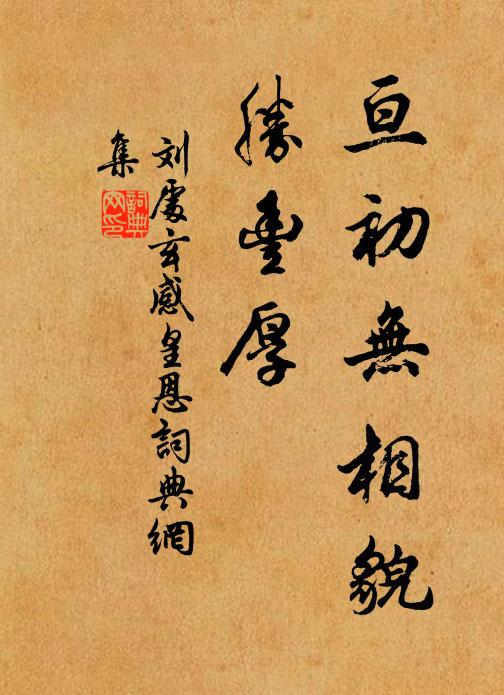 亘初無相貌
勝豊厚
刘處玄感皇恩詞典網
集
詞典
网印